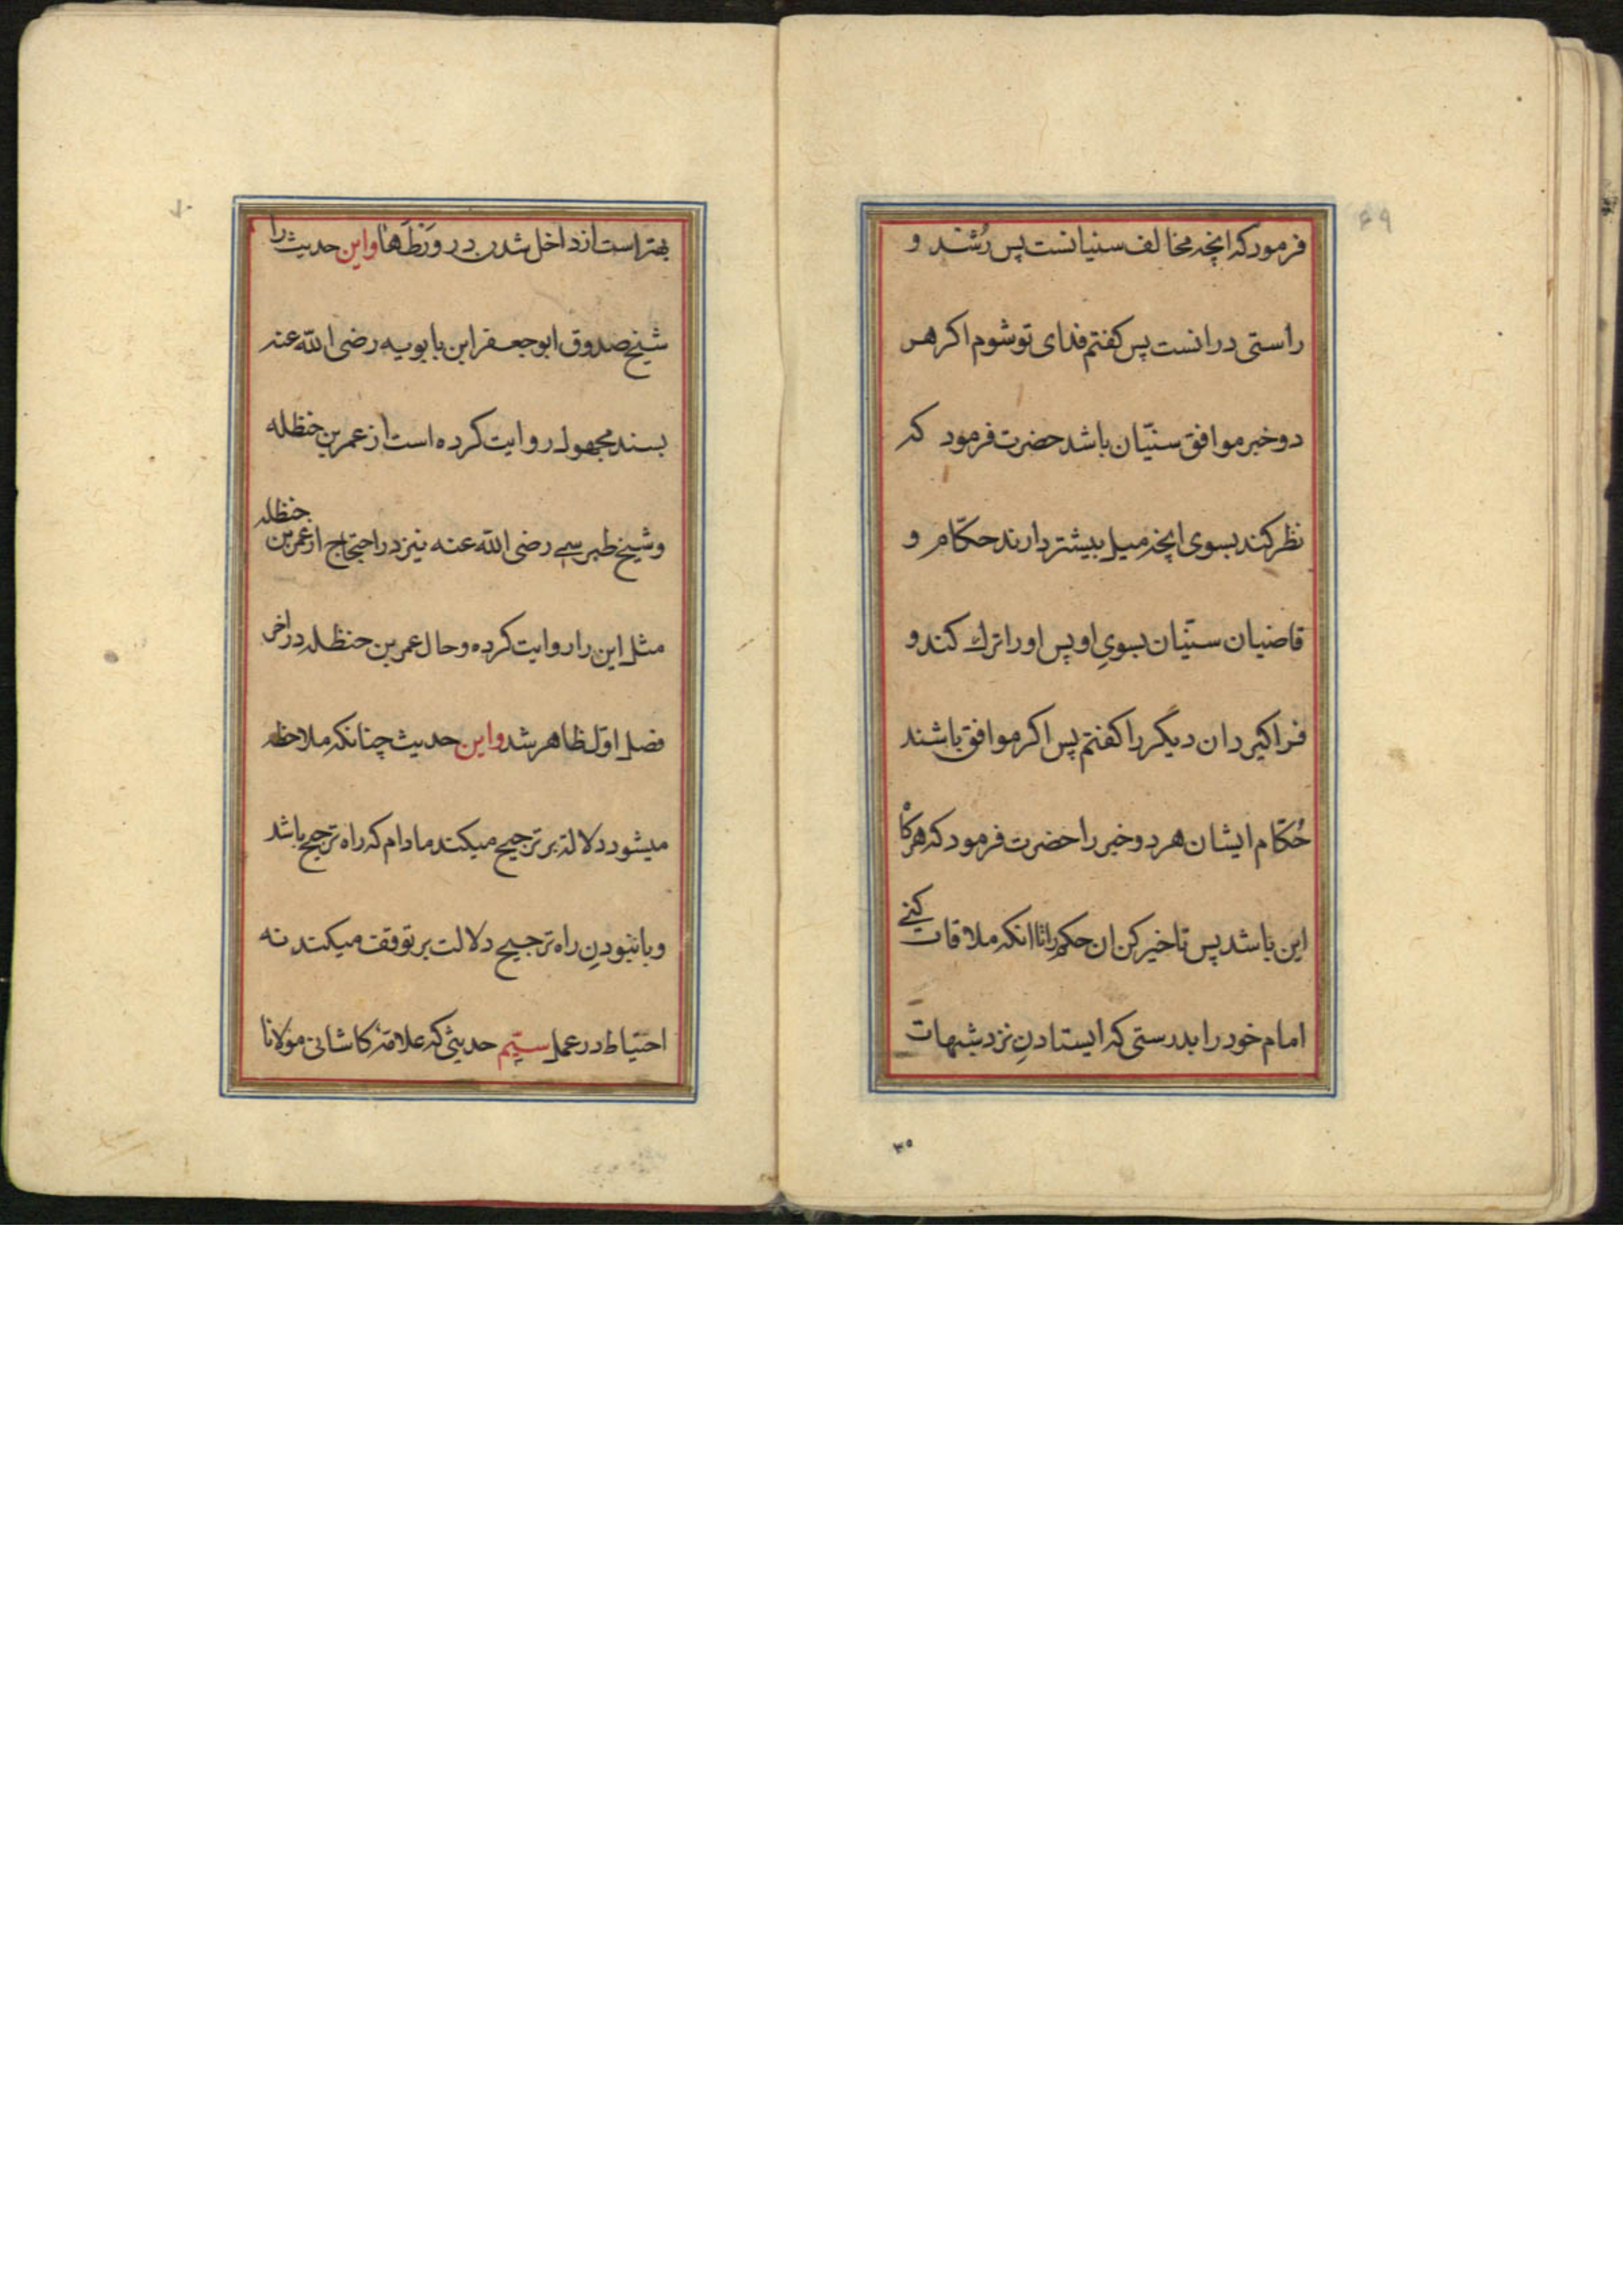 ۶۹
فرمود که انچه مخالف سنیانست پس رُشد و
راستی در انست پس کفتم فدای تو شوم اکر هر
دو خبر موافق سنیّان باشد حضرت فرمود که
نظر کند بسوی انچه میل بیشتر دارند حکّام و
قاضیان سنّیان بسویِ او پس او را ترك کند و
فراکیرد ان دیگر را کفتم پس اکر موافق باشند
حُکّام ایشان هر دو خبر را حضرت فرمود که هرکاه
این باشد پس تاخیر کن ان حکم را تا انکه ملاقات کنے
امام خود را بدرستی که ایستادنِ نزد شبهات
۳۵
۷۰
بهتر است از داخل شدن در وَرَطَهها و این حدیث را
شیخ صدوق ابو جعفر ابن بابویه رضی الله عنه
بسند مجهول روایت کرده است از عمر بن حنظله
و شیخ طبرسے رضی الله عنه نیز در احتجاج از عمر بن حنظله
مثل این را روایت کرده و حال عمر بن حنظله در اخر
فصل اوّل ظاهر شد و این حدیث چنانکه ملاحظه
میشود دلالة بر ترجیح میکند مادام که راه ترجیح باشد
و با نبودنِ راه ترجیح دلالت بر توقف میکند نه
احتیاط در عمل سیّم حدیثی که علامهٔ کاشانی مولانا